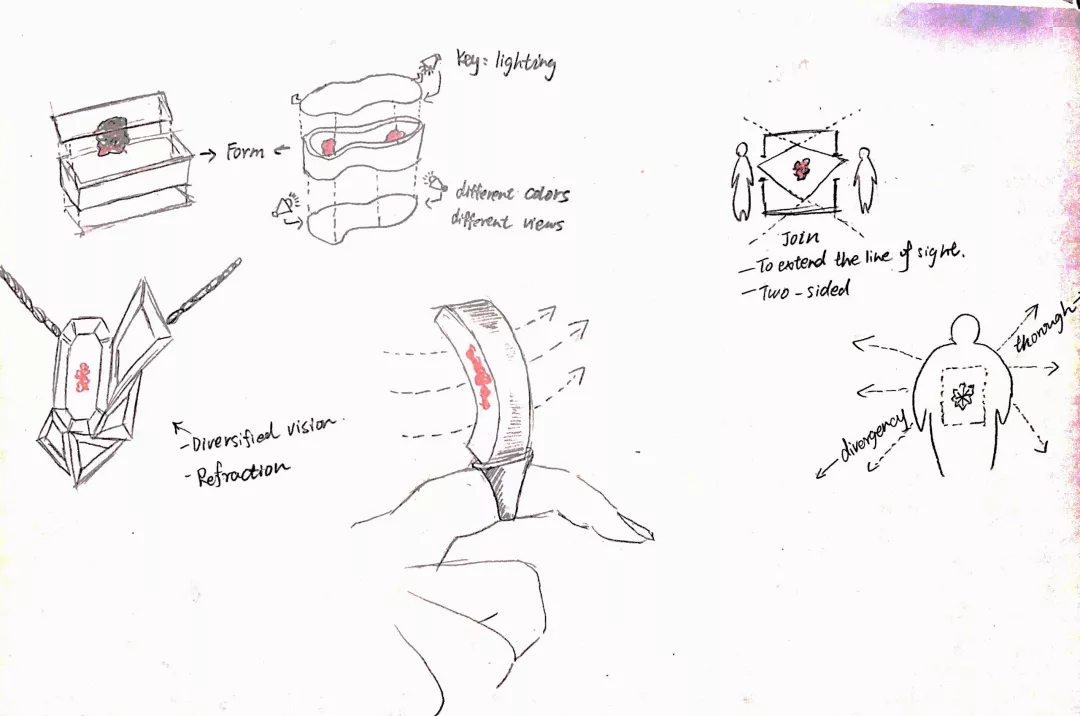 Key: lighting
Form
different colors
different views
Join
-To extend the line of sight.
-Two-sided
thorough
divergency
-Diversified vision
-Refraction